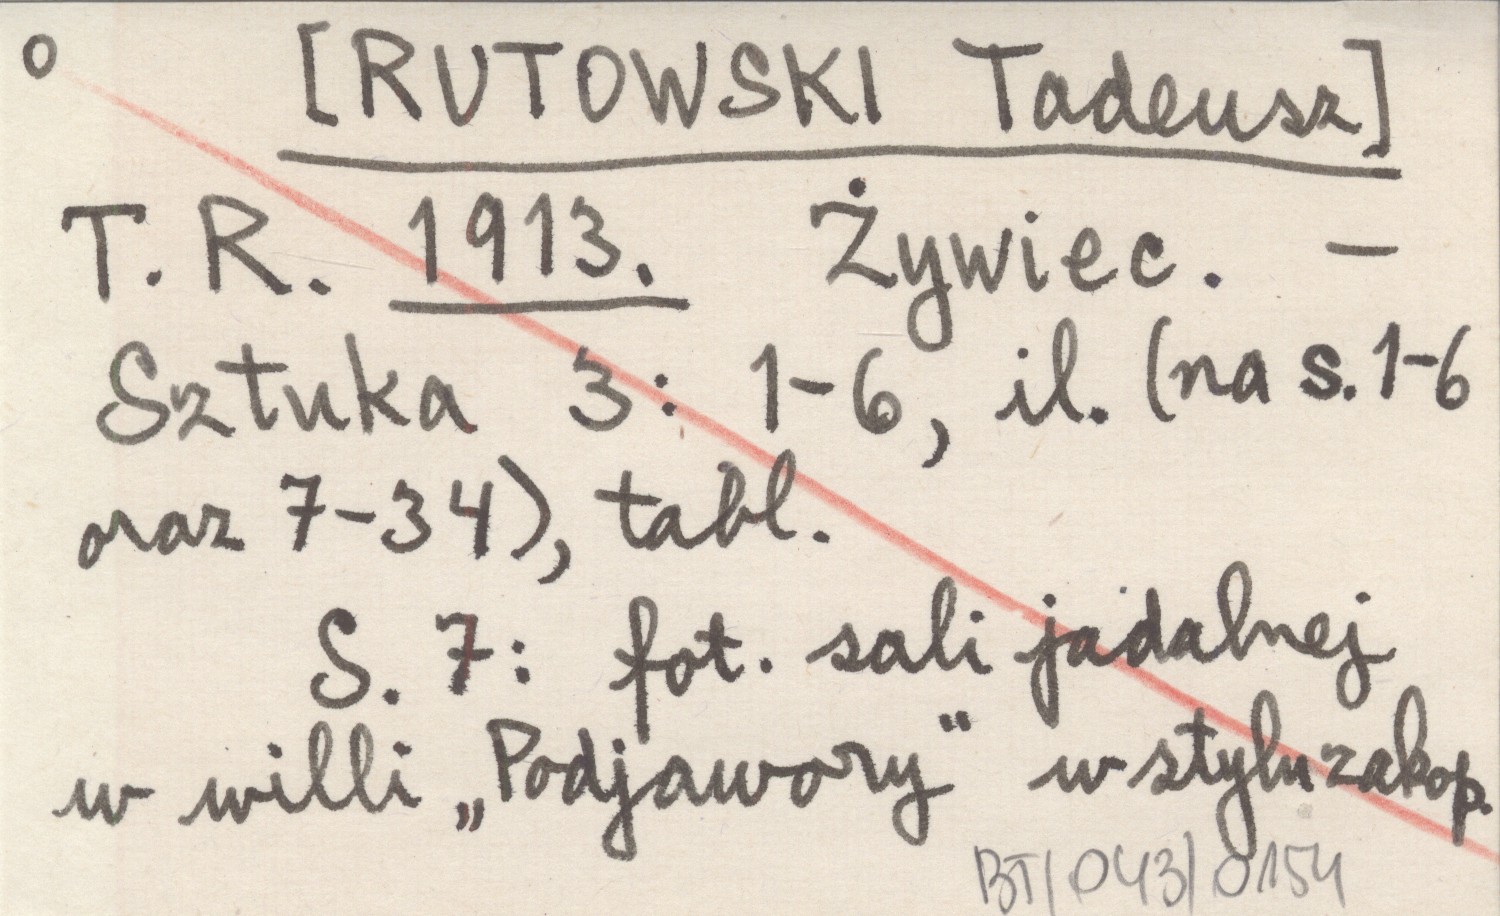 o [RUTOWSKI Tadeusz]
T. R. 1913. Żywiec. —
Sztuka 3: 1-6, il. (na s. 1-6
oraz 7-34), tabl.
S. 7: fot. sali jadalnej
w willi „Podjawory" w stylu zakop.
BT/043/0154